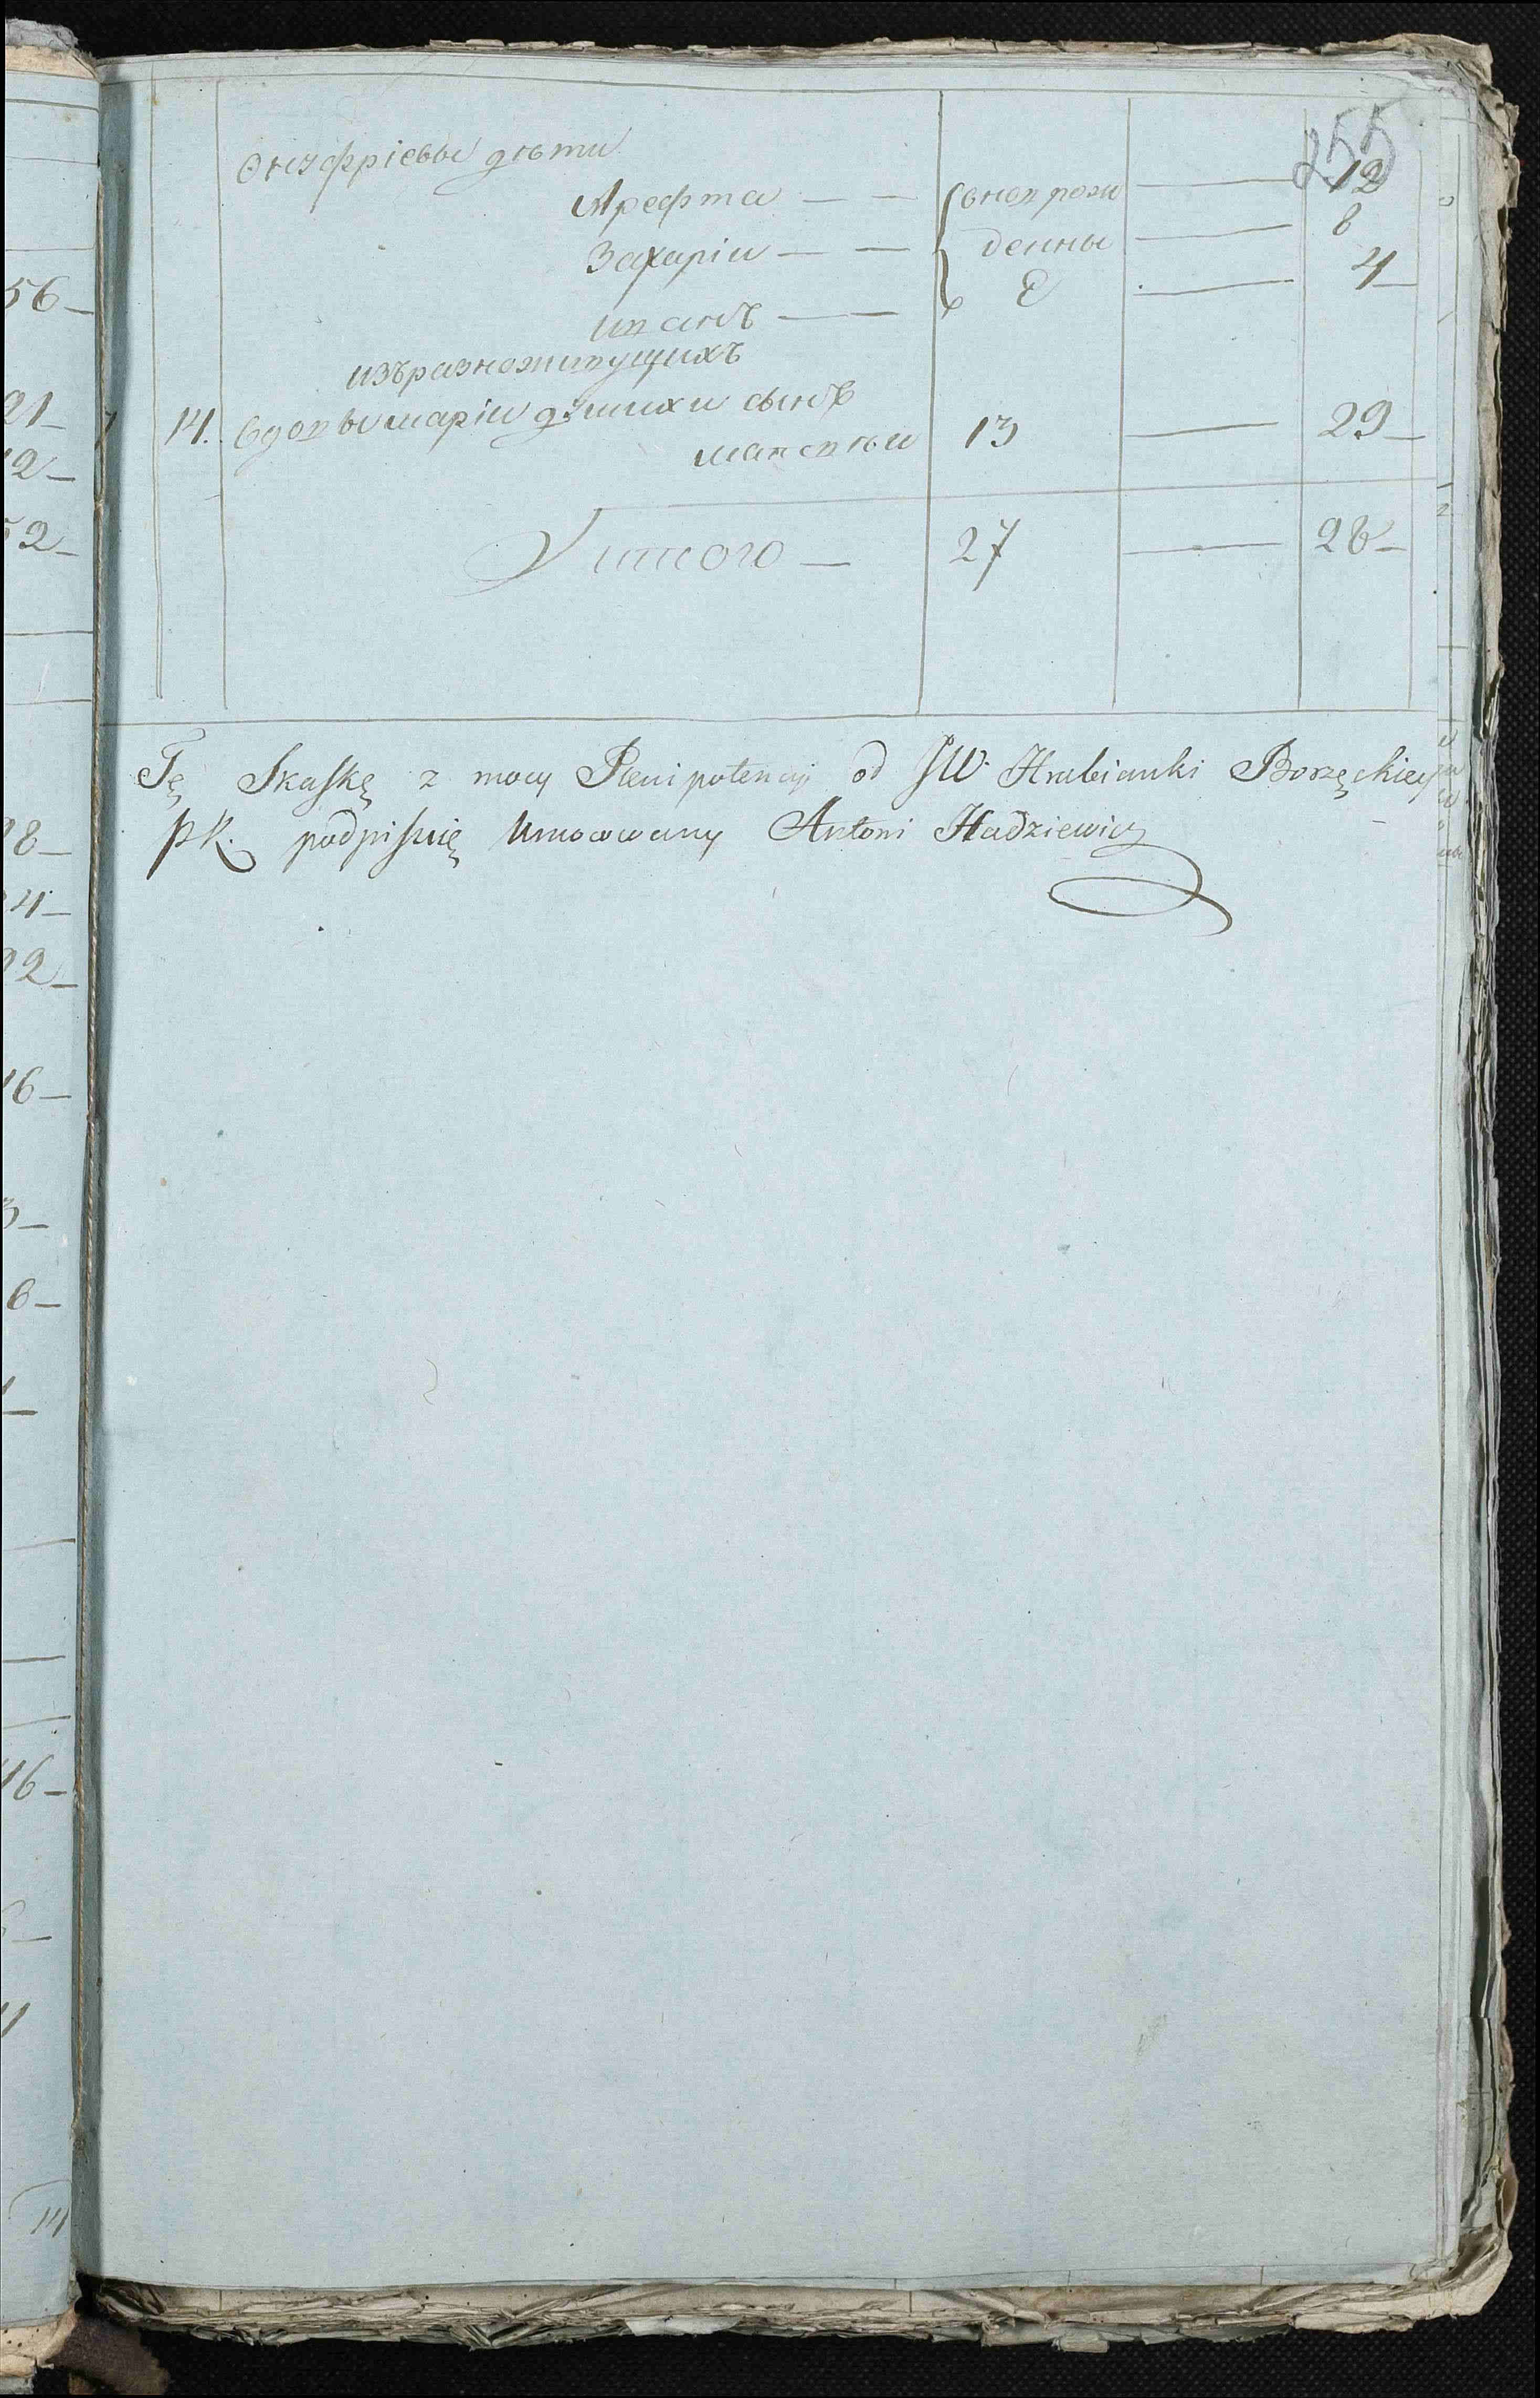 255
Онуфріевы дѣти
Арефта — — вновь рож — 12
Захаріи — — денны — 8
Иванъ — — е — 4
изъ разноживущихъ
14. вдовы маріи сынъ
матвѣи 13 — 29
Итого — 27 — 28
Tę Skaskę z mocy Plenipotencyi od JW. Hrabianki Borzęckiey
PR. podpisuię Umocowany Antoni Hadziewicz
56
21
12
52
28
24
22
16
3
6
1
16
14